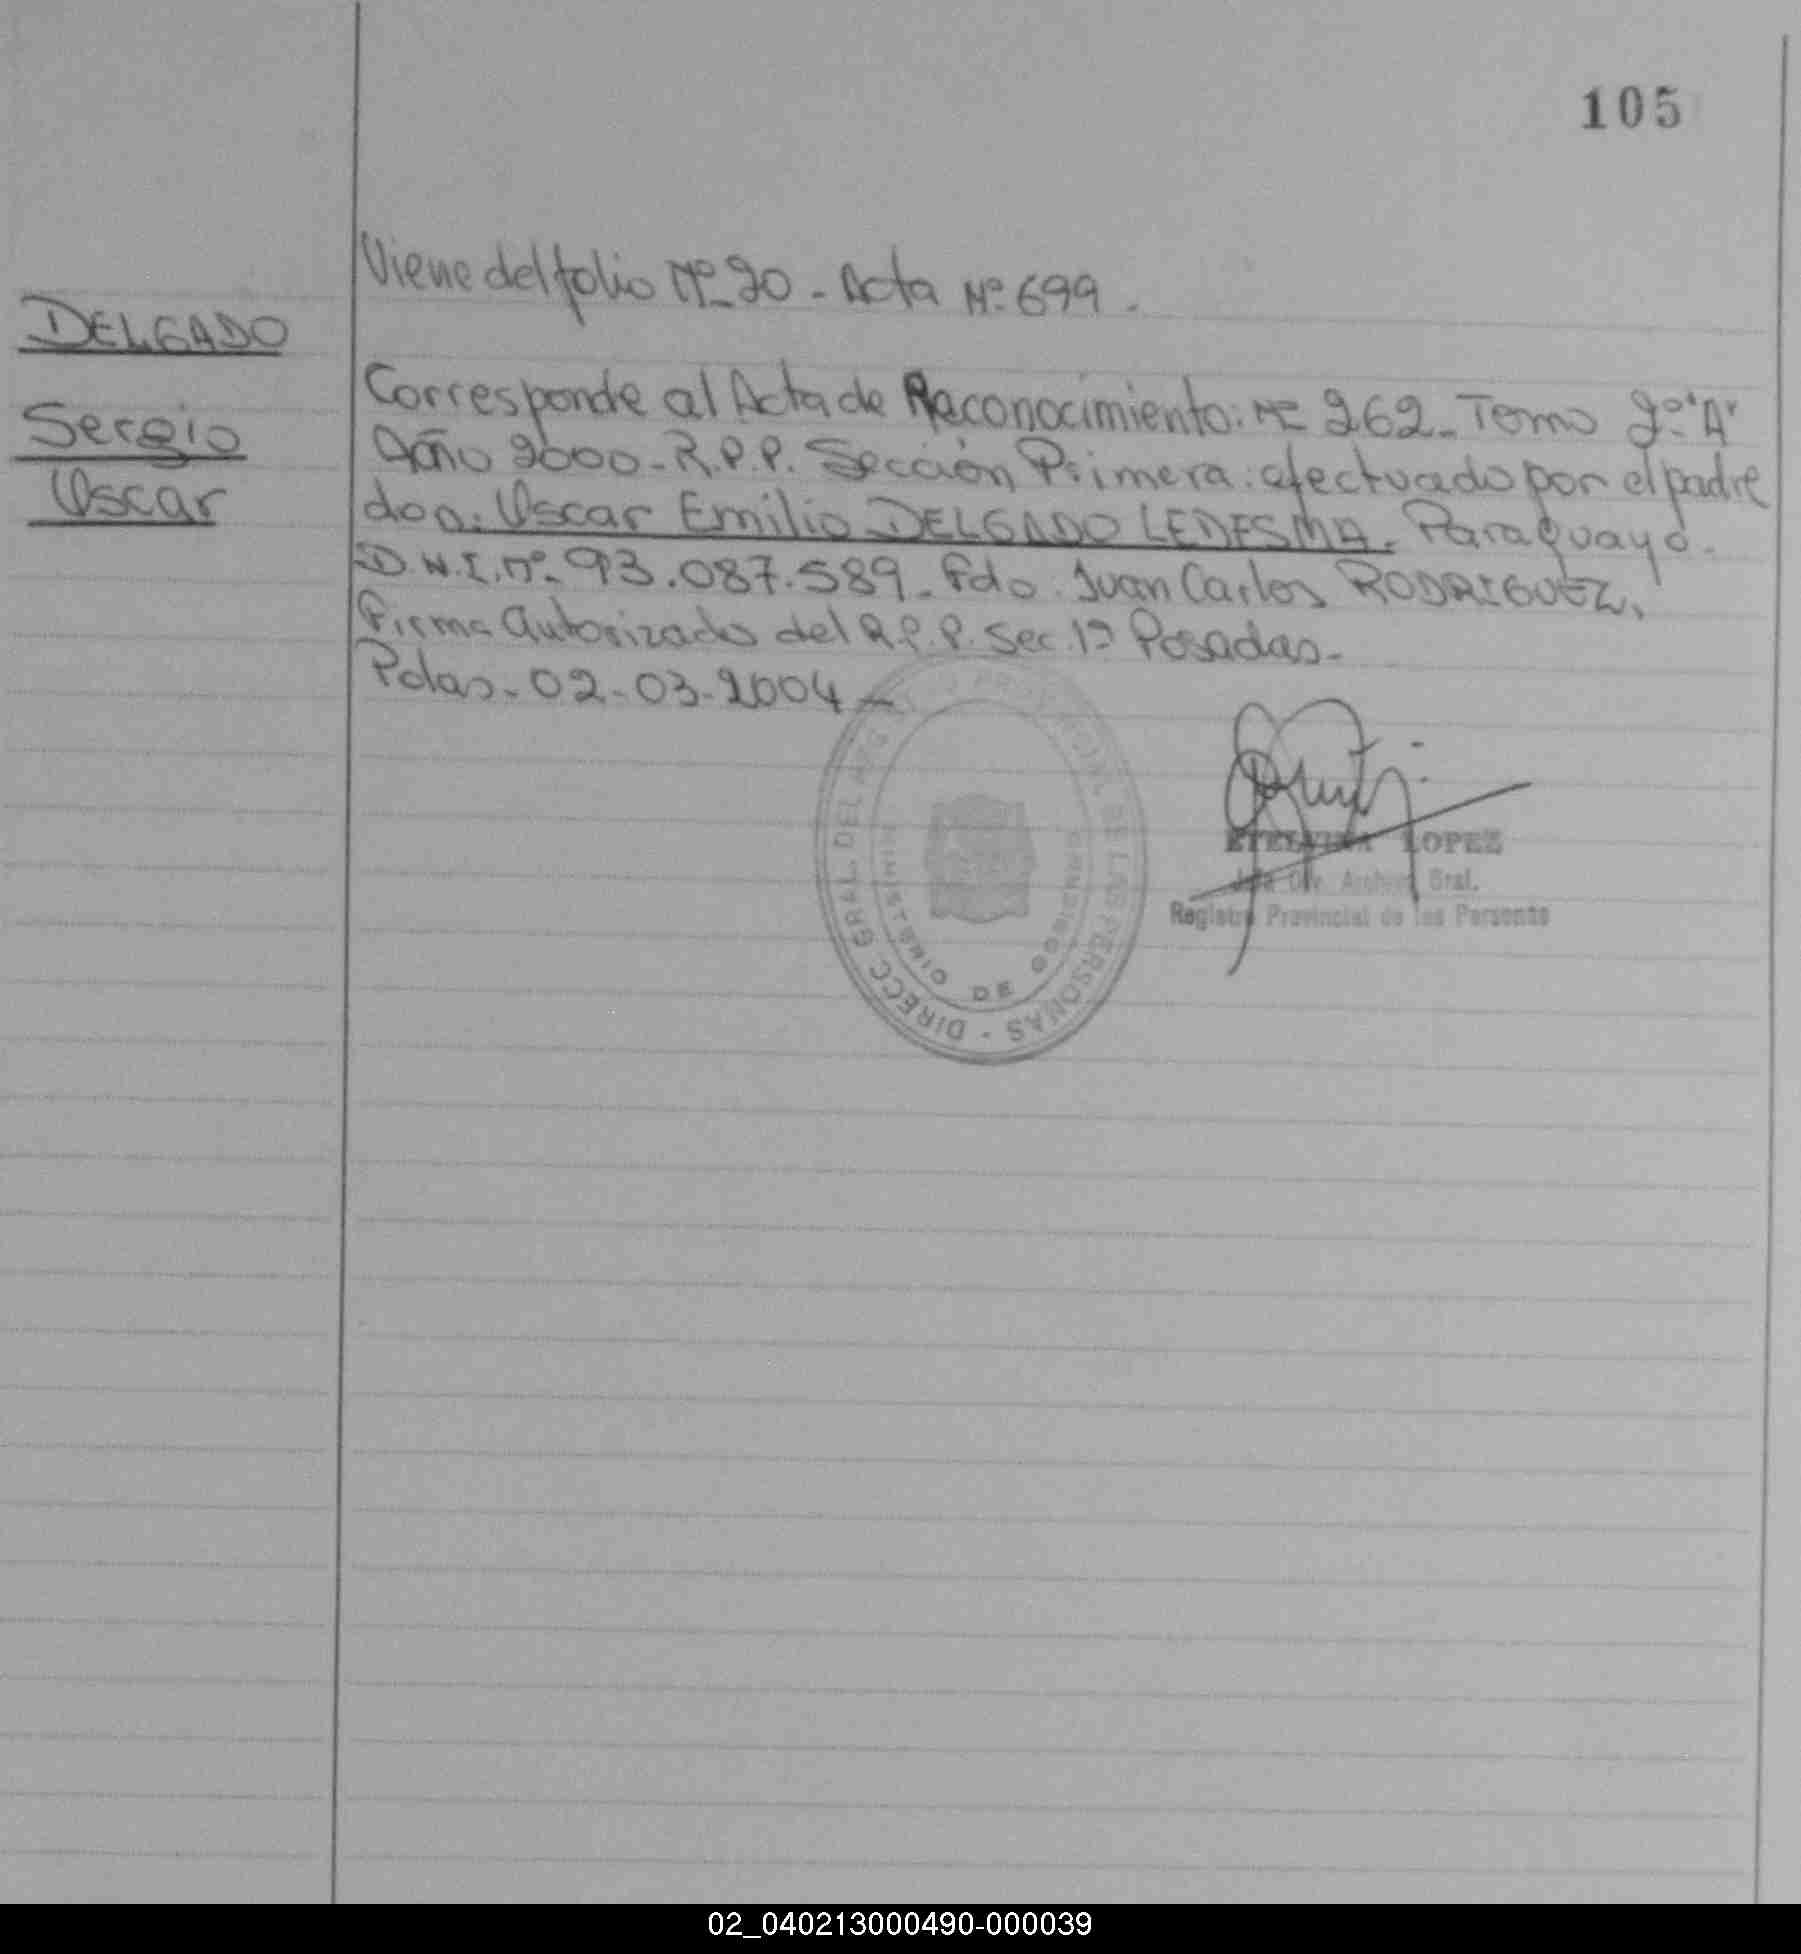 105
Viene del folio Nº 20 - Acta Nº 699.
DELGADO
Sergio
Oscar
Corresponde al Acta de Reconocimiento: Nº 262 - Tomo 2º "A"
Año 2000 - R.P.P. Sección Primera: efectuado por el padre
don: Oscar Emilio DELGADO LEDESMA. Paraguayo.
D.N.I. Nº 93.087.589 - Fdo: Juan Carlos RODRIGUEZ,
Firma Autorizada del R.P.P. Sec. 1ª Posadas -
Pdas - 02-03-2004 -
DIRECC GRAL. DEL REGISTRO PROVINCIAL DE LAS PERSONAS -
MINISTERIO DE GOBIERNO
ETELVINA LOPEZ
Jefa Div. Archivo Gral.
Registro Provincial de las Personas
02_040213000490-000039